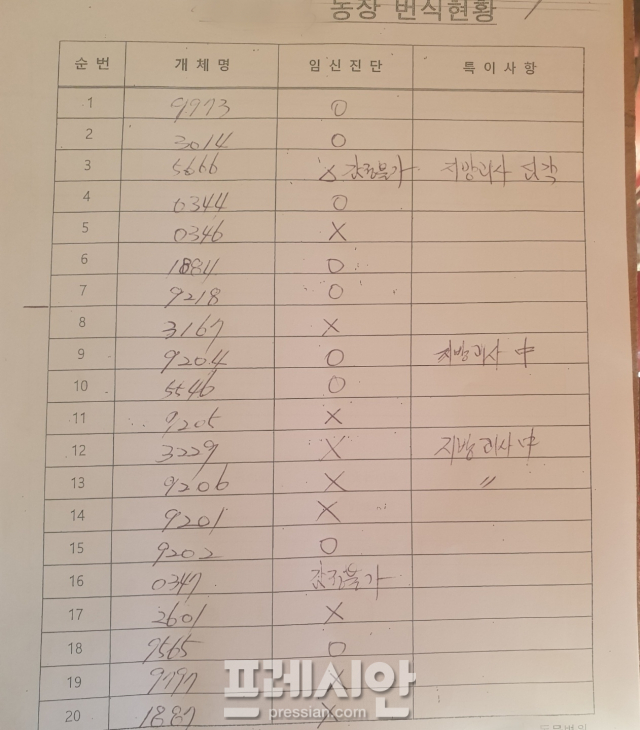 농장 번식현황
순 번 개 체 명 임 신 진 단 특 이 사 항
1 9773 O
2 3014 O
3 5666 X 감정불가 지방괴사
4 0344 O
5 0346 X
6 1884 O
7 9218 O
8 3167 X
9 9204 O 지방괴사 中
10 5546 O
11 9205 X
12 3229 X 지방괴사 中
13 9206 X 〃
14 9201 X
15 9202 O
16 0347 감정불가
17 2601 X
18 7565 O
19 9797 X
20 1887
프레시안
pressian.com